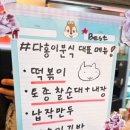 Best
#다흥이분식 대표 메뉴!
• 떡볶이
• 토종찰순대+내장
납작만두